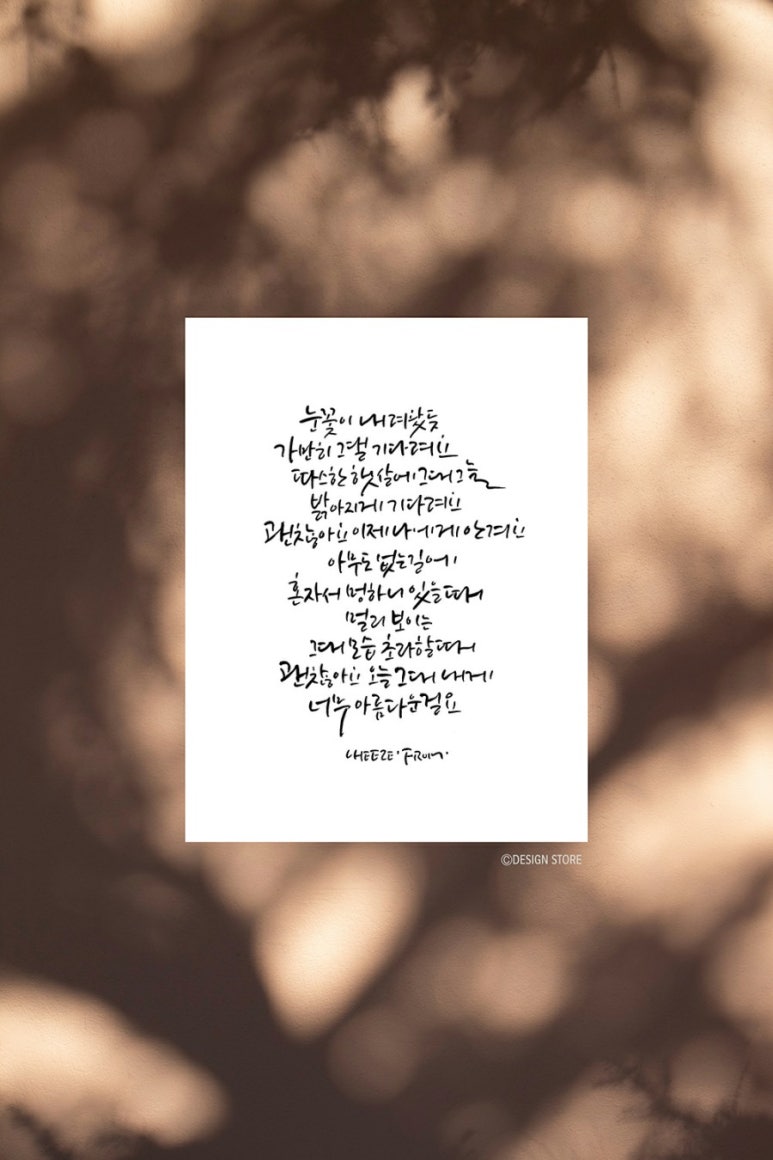 눈꽃이 내려왔듯
가만히 그댈 기다려요
따스한 햇살에 그대 그늘
밝아지게 기다려요
괜찮아요 이제 나에게 안겨요
아무도 없는 길에
혼자서 멍하니 있을 때
멀리 보이는
그대 모습 초라할 때
괜찮아요 오늘 그대 내게
너무 아름다운걸요
©DESIGN STORE